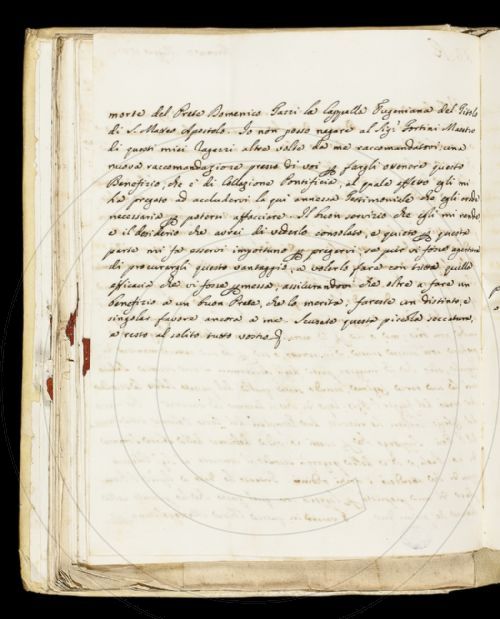 morte del Prete Domenico Garzi la Cappella Eugeniana del Titolo
di S. Marco Apostolo. Io non posso negare al Sig.r Fortini Maestro
di questi miei Ragazzi altra volta da me raccomandatovi, una
nuova raccomandazione presso di voi p fargli ottenere questo
Benefizio, che è di Collazione Pontificia, al quale effetto egli mi
ha pregato ad accludervi la qui annessa Testimoniale che egli crede
necessaria p potersi affacciare. Il buon servizio che egli mi rende
e il desiderio che avrei di vederlo consolato, e quieto p questa
parte mi fa esservi importuno p pregarvi, se pur vi fosse apertura
di procurargli questo vantaggio, a volerlo fare con tutta quella
efficacia che vi fosse pmessa, assicurandovi che oltre a fare un
benefizio a un buon Prete, che lo merita, fareste un distinto, e
singolar favore ancora a me. Scusate questa piccola seccatura,
e resto al solito tutto vostro